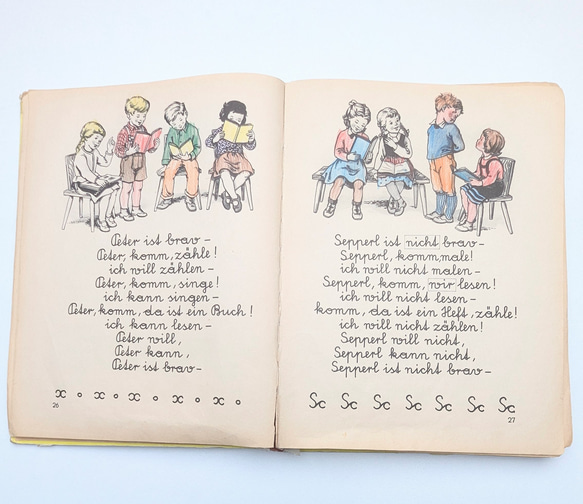 Peter ist brav –
Peter, komm, zähle!
ich will zählen –
Peter, komm, singe!
ich kann singen –
Peter, komm, da ist ein Buch!
ich kann lesen –
Peter will,
Peter kann,
Peter ist brav –
x o x o x o x o x o
26
Sepperl ist nicht brav –
Sepperl, komm, male!
ich will nicht malen –
Sepperl, komm, wir lesen!
ich will nicht lesen –
komm, da ist ein Heft, zähle!
ich will nicht zählen!
Sepperl will nicht,
Sepperl kann nicht,
Sepperl ist nicht brav –
Sc Sc Sc Sc Sc Sc Sc
27